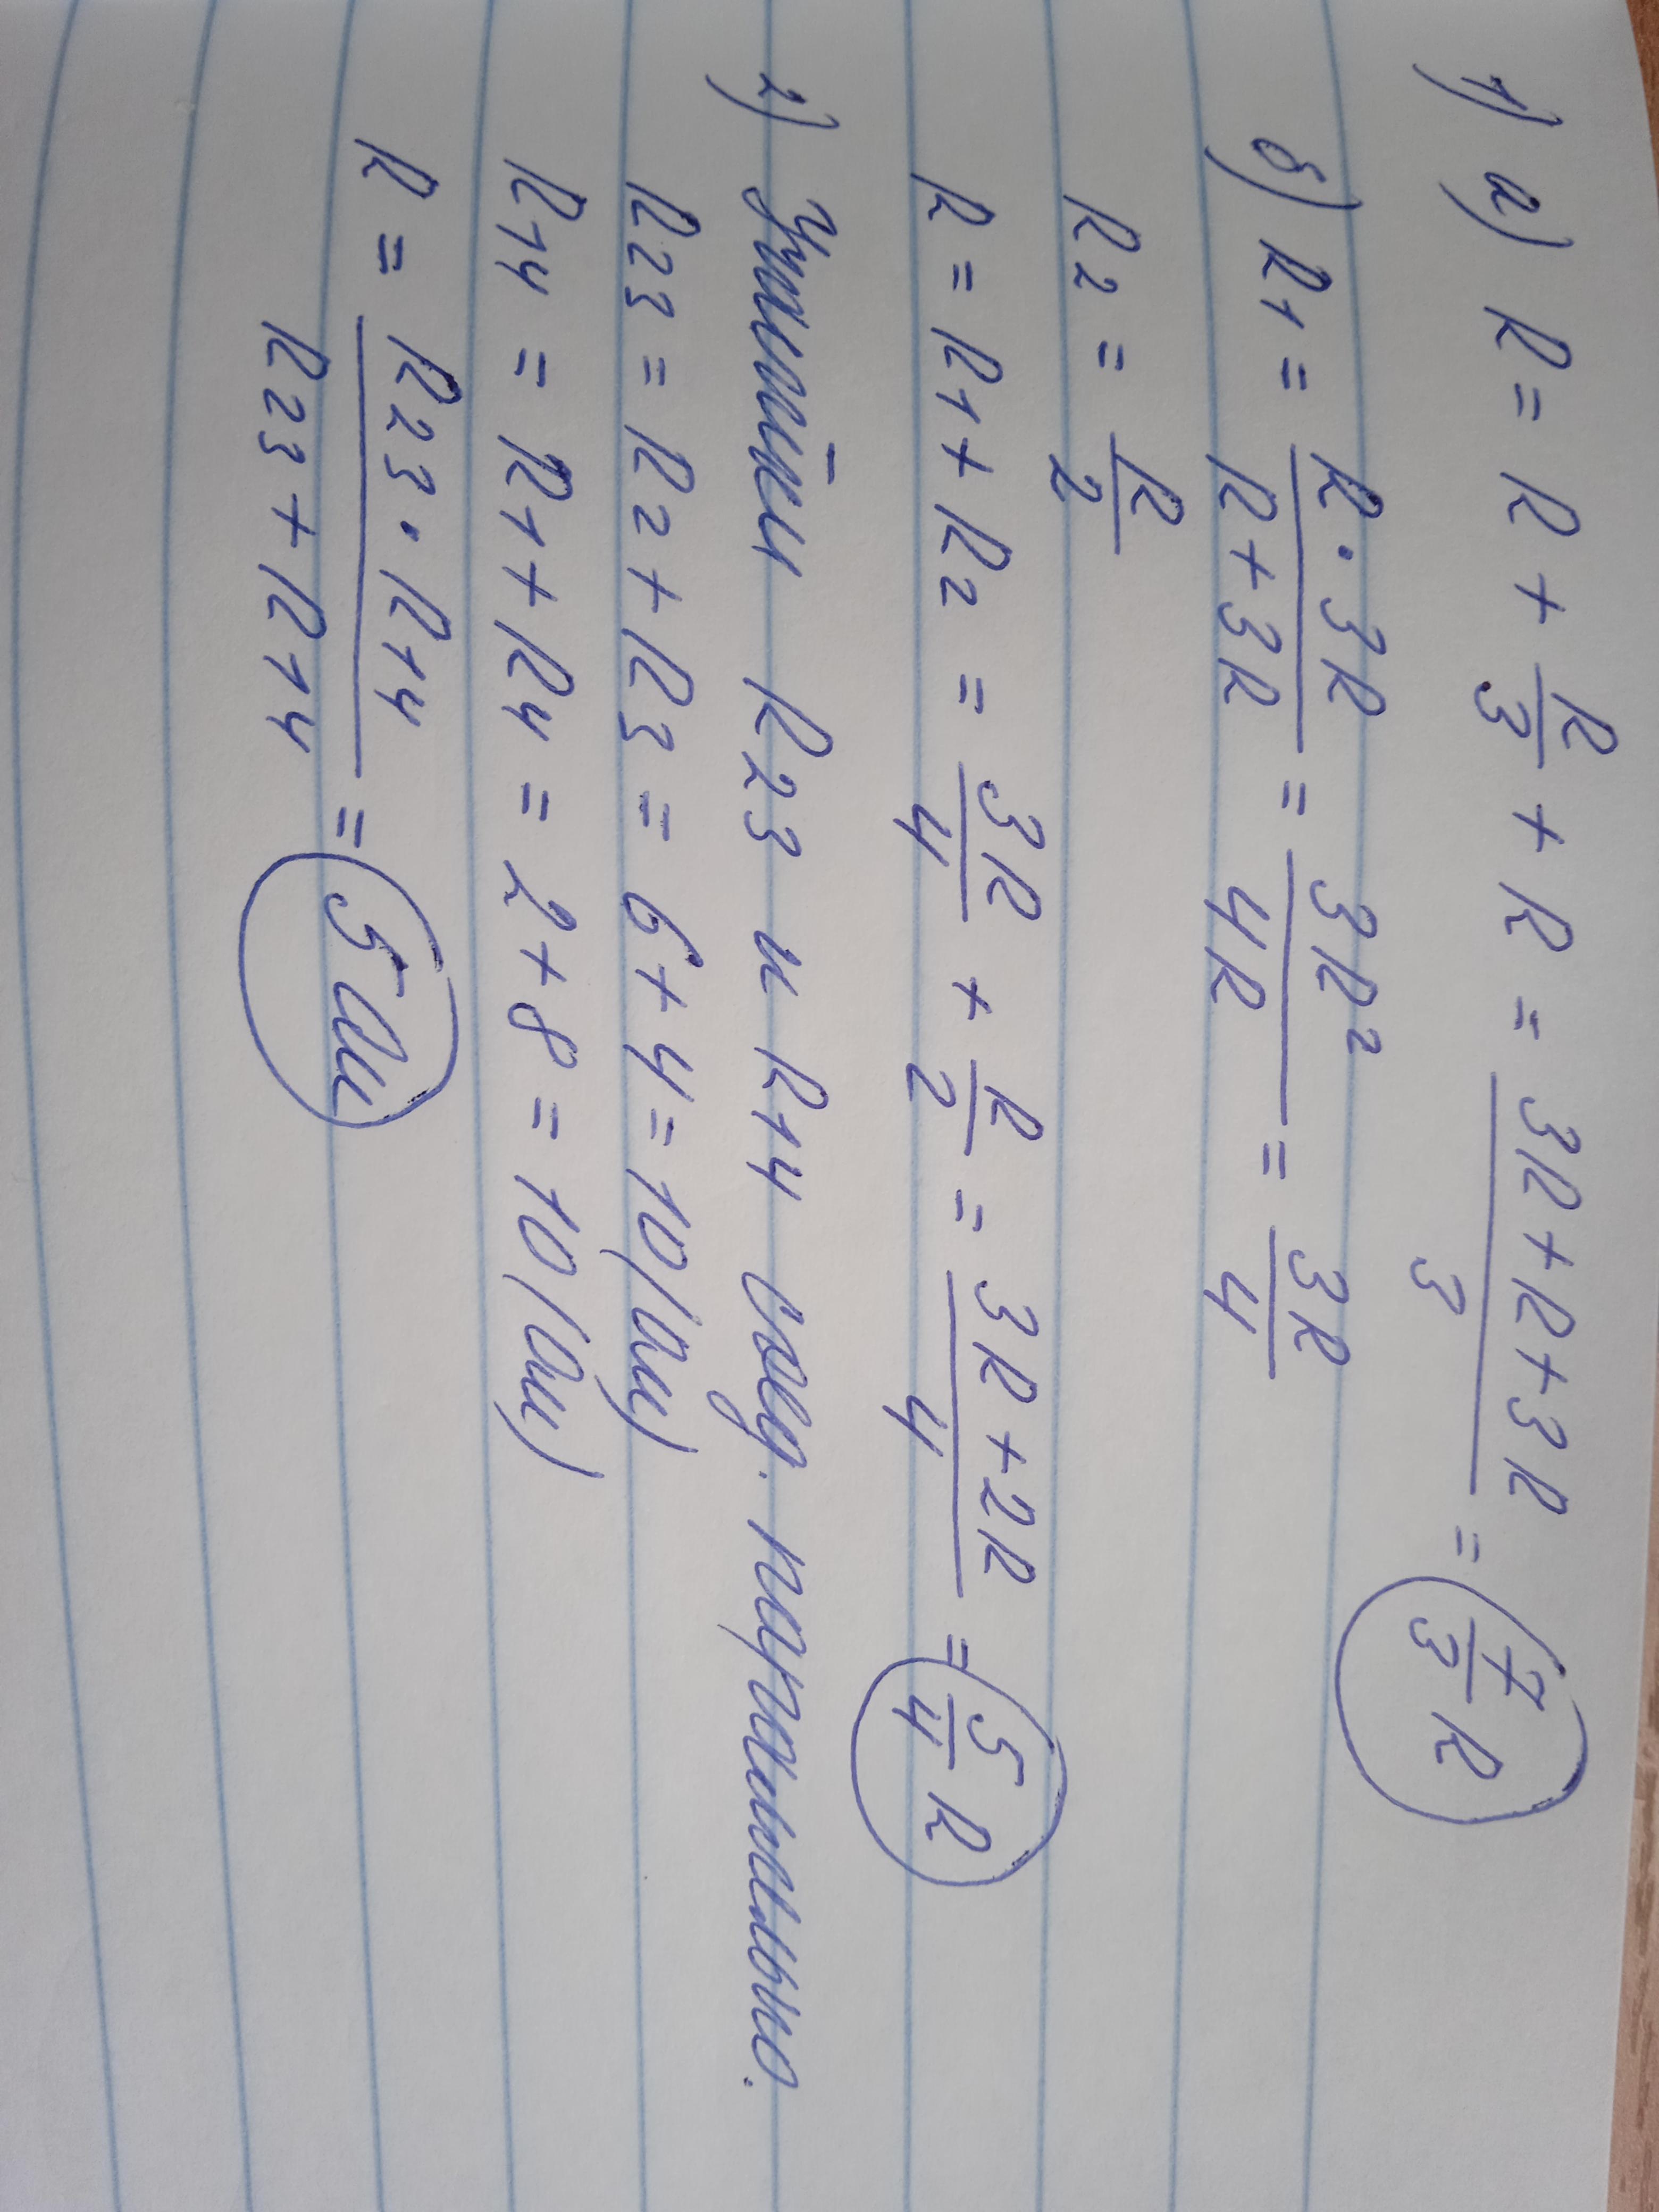 1) а) R = R + R/3 + R = (3R+R+3R)/3 = 7/3 R
б) R1 = (R·3R)/(R+3R) = 3R²/4R = 3R/4
R2 = R/2
R = R1 + R2 = 3R/4 + R/2 = (3R+2R)/4 = 5/4 R
2) R23 и R14 соед. параллельно.
R23 = R2 + R3 = 6 + 4 = 10 (Ом)
R14 = R1 + R4 = 2 + 8 = 10 (Ом)
R = (R23 · R14)/(R23 + R14) = 5 Ом